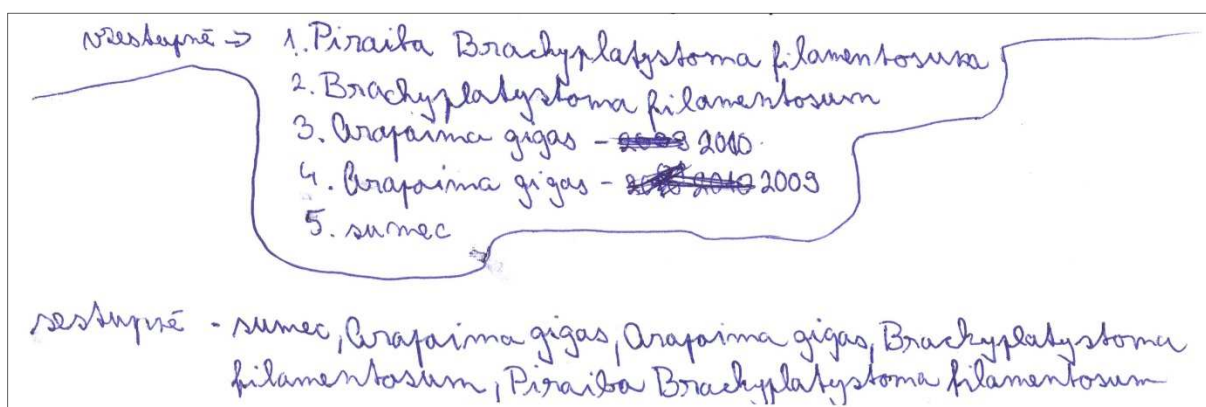 vzestupně => 1. Piraiba Brachyplatystoma filamentosum
2. Brachyplatystoma filamentosum
3. Arapaima gigas - 2010
4. Arapaima gigas - 2009
5. sumec
sestupně - sumec, Arapaima gigas, Arapaima gigas, Brachyplatystoma
filamentosum, Piraiba Brachyplatystoma filamentosum